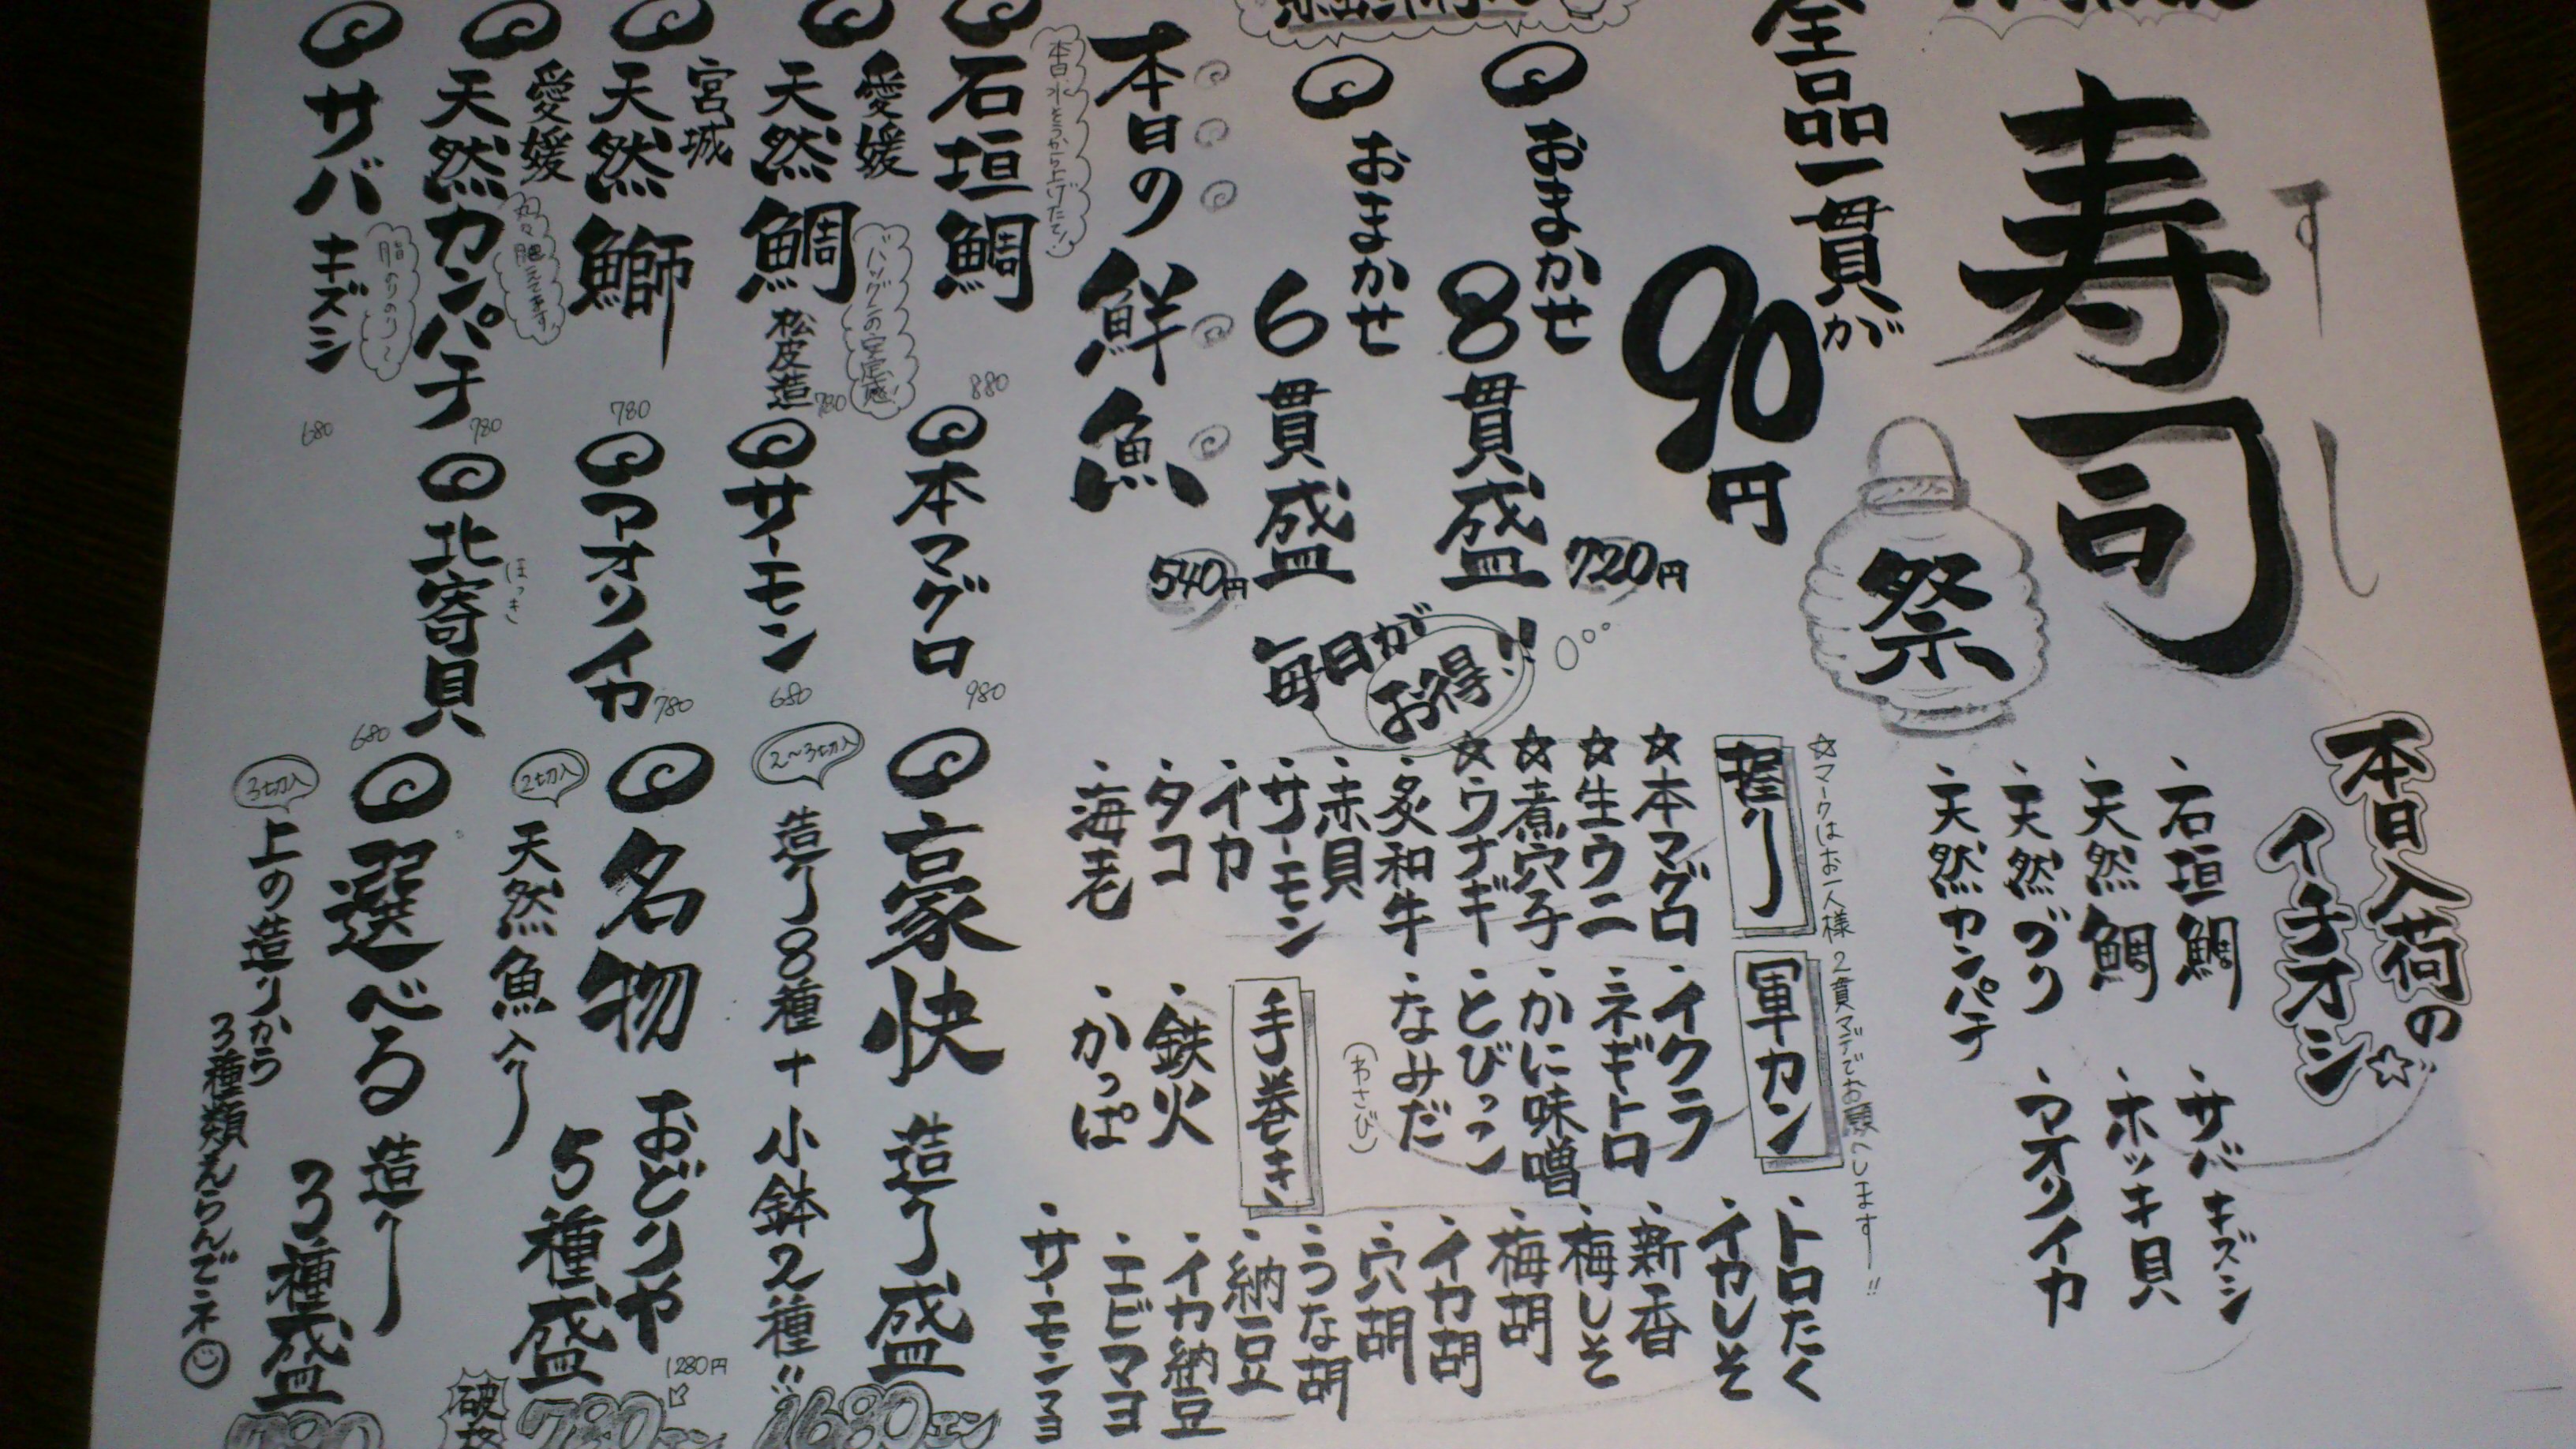 寿司
すし
祭
全品一貫が
90円
おまかせ
8貫盛
720円
おまかせ
6貫盛
540円
毎日が
お得!!
本日入荷の
イチオシ☆
・石垣鯛
・天然鯛
・天然づり
・天然カンパチ
・サバキズシ
・ホッキ貝
・マオリイカ
☆マークはお一人様2貫マデでお願いしますー!!
握り
☆本マグロ
☆生ウニ
☆煮穴子
☆ウナギ
・炙和牛
・赤貝
・サーモン
・イカ
・タコ
・海老
軍カン
・イクラ
・ネギトロ
・かに味噌
・とびっこ
・なみだ
(わさび)
手巻き
・鉄火
・かっぱ
・トロたく
・イカしそ
・新香
・梅しそ
・梅胡
・イカ胡
・穴胡
・うな胡
・納豆
・イカ納豆
・エビマヨ
・サーモンマヨ
本日の鮮魚
本日水そうから上げたて!
石垣鯛
880
愛媛
天然鯛
松皮造
780
バツグンの安定感!
宮城
天然鰤
780
愛媛
天然カンパチ
780
丸々肥えてます
サバキズシ
680
脂のりのり〜
本マグロ
980
サーモン
680
マオリイカ
780
北寄貝
ほっき
680
豪快造り盛
2〜3切入
造り8種+小鉢2種!!
1680エン
名物おどりや
5種盛
2切入
天然魚入り
1280円
破格
780エン
選べる造り
3種盛
3切入
上の造りから
3種類えらんでネ